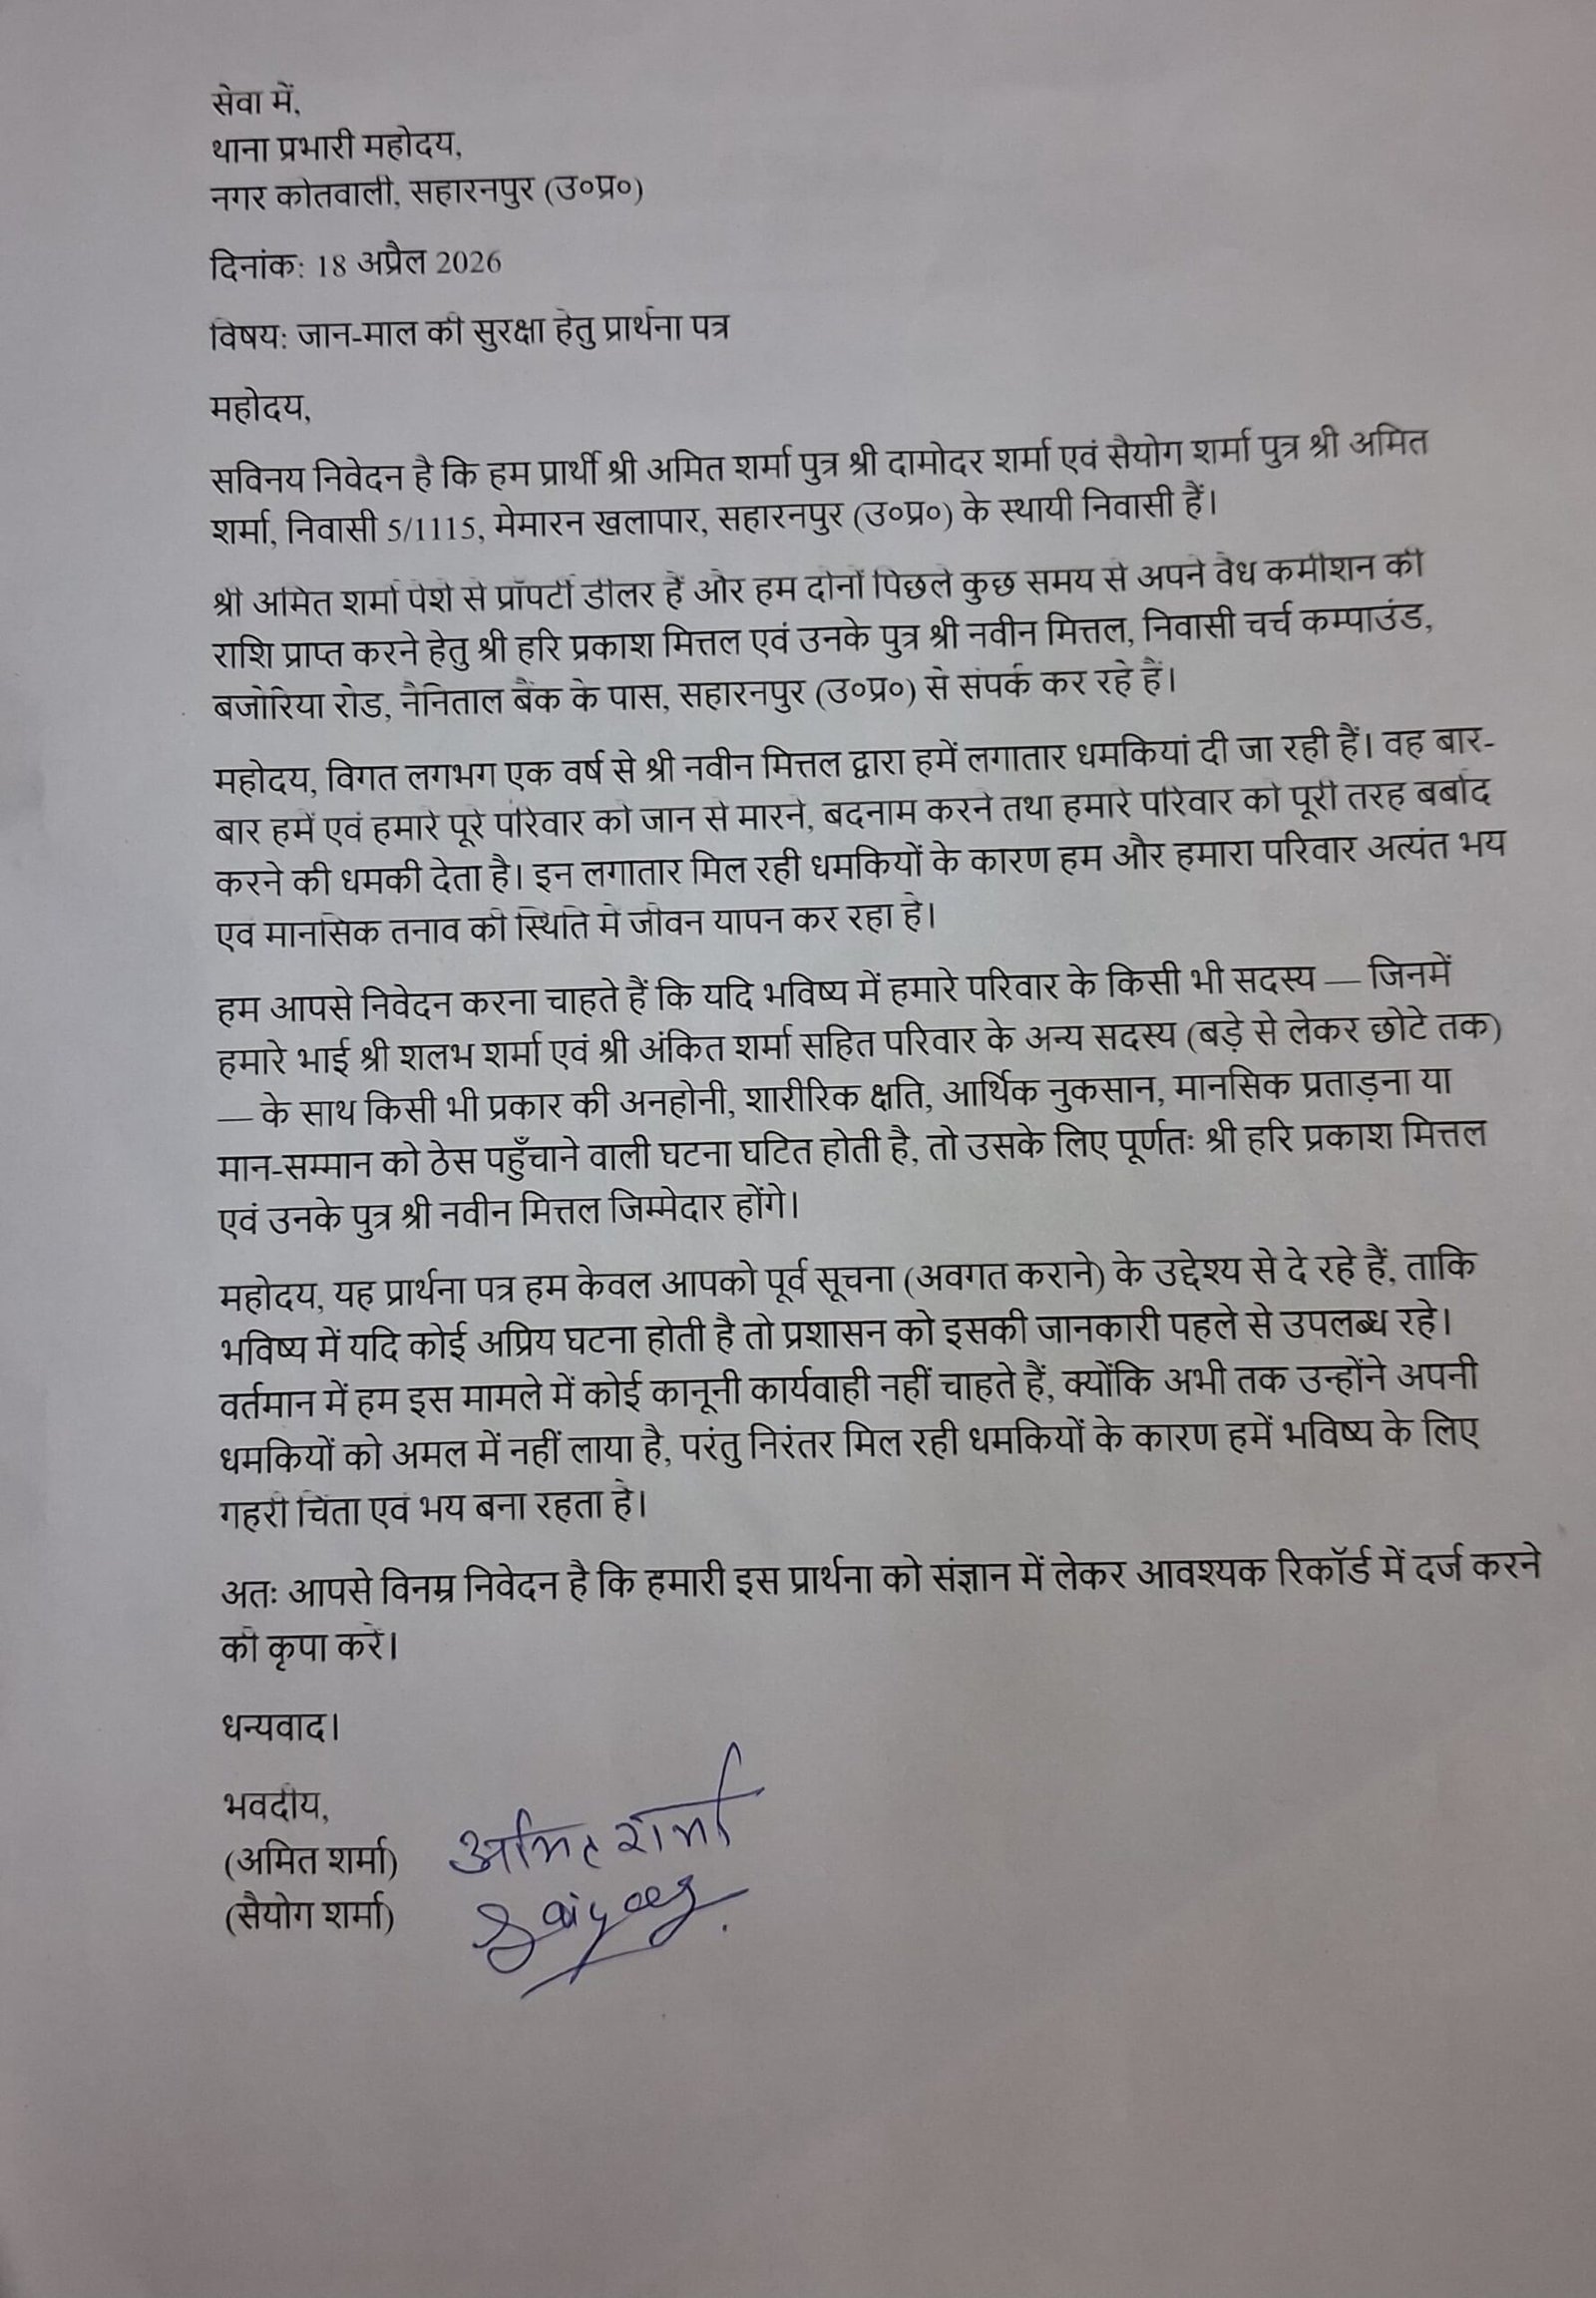 सेवा में,
थाना प्रभारी महोदय,
नगर कोतवाली, सहारनपुर (उ०प्र०)
दिनांक: 18 अप्रैल 2026
विषय: जान-माल की सुरक्षा हेतु प्रार्थना पत्र
महोदय,
सविनय निवेदन है कि हम प्रार्थी श्री अमित शर्मा पुत्र श्री दामोदर शर्मा एवं सैयोग शर्मा पुत्र श्री अमित
शर्मा, निवासी 5/1115, मेमारन खलापार, सहारनपुर (उ०प्र०) के स्थायी निवासी हैं।
श्री अमित शर्मा पेशे से प्रॉपर्टी डीलर हैं और हम दोनों पिछले कुछ समय से अपने वैध कमीशन की
राशि प्राप्त करने हेतु श्री हरि प्रकाश मित्तल एवं उनके पुत्र श्री नवीन मित्तल, निवासी चर्च कम्पाउंड,
बजोरिया रोड, नैनिताल बैंक के पास, सहारनपुर (उ०प्र०) से संपर्क कर रहे हैं।
महोदय, विगत लगभग एक वर्ष से श्री नवीन मित्तल द्वारा हमें लगातार धमकियां दी जा रही हैं। वह बार-
बार हमें एवं हमारे पूरे परिवार को जान से मारने, बदनाम करने तथा हमारे परिवार को पूरी तरह बर्बाद
करने की धमकी देता है। इन लगातार मिल रही धमकियों के कारण हम और हमारा परिवार अत्यंत भय
एवं मानसिक तनाव की स्थिति में जीवन यापन कर रहा है।
हम आपसे निवेदन करना चाहते हैं कि यदि भविष्य में हमारे परिवार के किसी भी सदस्य — जिनमें
हमारे भाई श्री शलभ शर्मा एवं श्री अंकित शर्मा सहित परिवार के अन्य सदस्य (बड़े से लेकर छोटे तक)
— के साथ किसी भी प्रकार की अनहोनी, शारीरिक क्षति, आर्थिक नुकसान, मानसिक प्रताड़ना या
मान-सम्मान को ठेस पहुँचाने वाली घटना घटित होती है, तो उसके लिए पूर्णतः श्री हरि प्रकाश मित्तल
एवं उनके पुत्र श्री नवीन मित्तल जिम्मेदार होंगे।
महोदय, यह प्रार्थना पत्र हम केवल आपको पूर्व सूचना (अवगत कराने) के उद्देश्य से दे रहे हैं, ताकि
भविष्य में यदि कोई अप्रिय घटना होती है तो प्रशासन को इसकी जानकारी पहले से उपलब्ध रहे।
वर्तमान में हम इस मामले में कोई कानूनी कार्यवाही नहीं चाहते हैं, क्योंकि अभी तक उन्होंने अपनी
धमकियों को अमल में नहीं लाया है, परंतु निरंतर मिल रही धमकियों के कारण हमें भविष्य के लिए
गहरी चिंता एवं भय बना रहता है।
अतः आपसे विनम्र निवेदन है कि हमारी इस प्रार्थना को संज्ञान में लेकर आवश्यक रिकॉर्ड में दर्ज करने
की कृपा करें।
धन्यवाद।
भवदीय,
(अमित शर्मा) अमित शर्मा
(सैयोग शर्मा) Saiyog